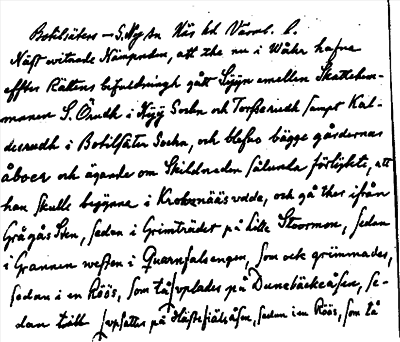 Bohlsäter — S. Ny sn Näs hd Värml. l.
Näst witnade Nämnden, att the nu i Wåhr hafva
effter Rättens befundningh gått Syyn emellan Skattehem-
manen S. Örudh i Nyy Sochn och Torsserudh sampt Kal-
desrudh i Bohlsäter Sochn, och blefvo bägge gårdarnas
åboer och ägande om Skildnaden sålunda förlijkte, att
han skulle begynna i Krokenääs udde, och gå thär ifrån
Grågås Sten, sedan i Grimträdet på Lille Stormon, sedan
i Grannen westen i Quarnfalsengen, som ock grimmades,
sedan i en Röös, som tå upplades på Dunebäckeåsen, se-
dan till på Hästefiälsåsen, sedan i en Röös, som tå